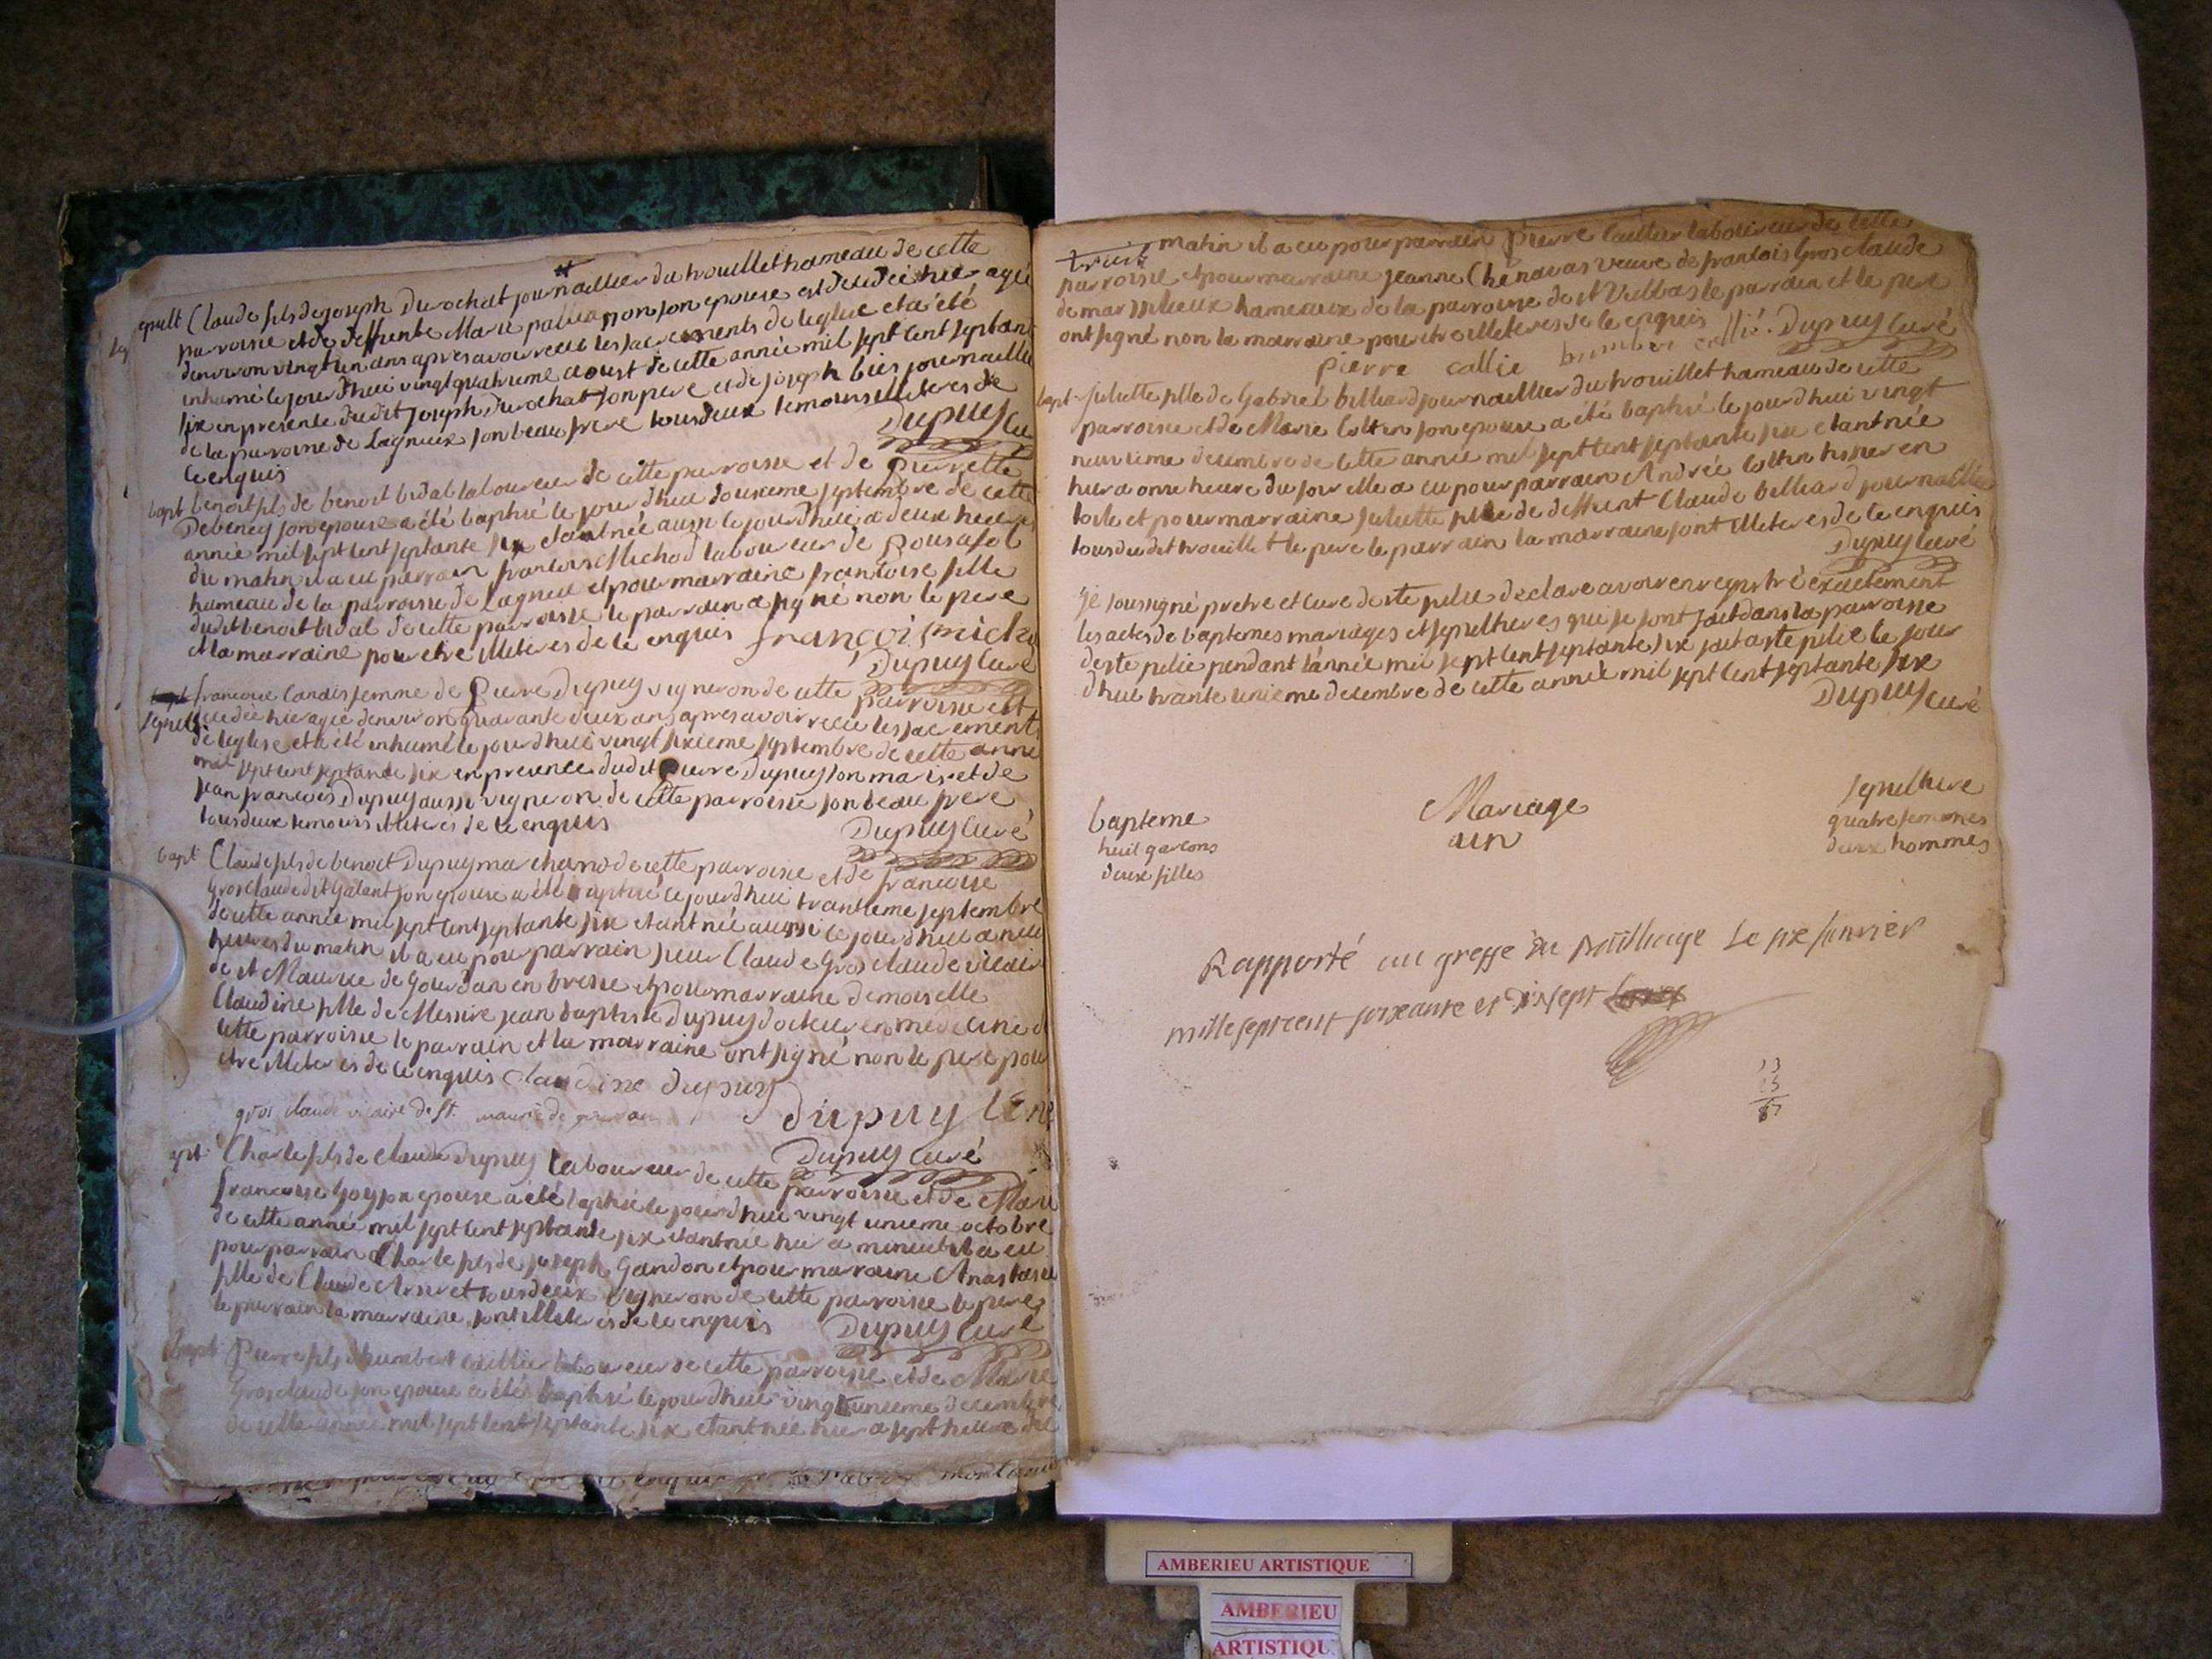 sepult Claude fils de joseph Durochat journallier du trouillet hameau de cette
parroisse et de deffunte Marie son epouse est decedée hier agé
denviron vingt un ans apres avoir receu les sacrements de leglise et a été
inhumé le jourdhui vingt quatrieme aoust de cette année mil sept cent septante
six en presence dudit joseph Durochat son pere et de joseph bies journallier
de la parroisse de Lagnieux son beau frere tous deux temoins illiteres de
ce enquis Dupuy Cu
bapt benoit fils de benoit bidal laboureur de cette parroisse et de pierrette
Debeney son epouse a été baptisé le jour dhui douxieme septembre de cette
année mil sept cent septante six etant née aussi le jourdhui a deux heures
du matin il a eu parrain francois Michod laboureur de Posafol
hameau de la parroisse de Lagneu et pour marraine francoise fille
dudit benoit bidal de cette parroisse le parrain a signé non le pere
et la marraine pour etre illiteres de ce enquis francois micho
Dupuy curé
sepult francoise Candis femme de Pierre Dupuy vigneron de cette parroisse est
decedée hier agée denviron quarante deux ans apres avoir receu les sacrements
de leglise et a été inhumé le jourdhui vingt sixieme septembre de cette anné
mil sept cent septante six en presence dudit Pierre Dupuy son mari et de
jean francois Dupuy aussi vigneron de cette parroisse son beau frere
tous deux temoins illiteres de ce enquis Dupuy Curé
bapt Claude fils de benoit Dupuy marchand de cette parroisse et de francoise
Grosclaude dit Galant son epouse a été baptisé le jourdhui trantieme septembre
de cette année mil sept cent septante six etant née aussi le jourdhui a neuf
heures du matin il a eu pour parrain sieur Claude Gros claude vicair
de st Maurice de Gourdan en bresse et pour marraine demoiselle
Claudine fille de Messire jean baptiste Dupuy docteur en medecine d
cette parroisse le parrain et la marraine ont signé non le pere pour
etre illiteres de ce enquis claudine dupuy
gros claude vicaire de st. maurice de gourdan Dupuy
Dupuy Curé
bapt Charle fils de Claude Dupuy laboureur de cette parroisse et de Marie
francoise Goy son epouse a été baptisé le jourdhui vingt unieme octobre
de cette année mil sept cent septante six etant née hier a minuit il a eu
pour parrain Charle fils de joseph Gandon et pour marraine Anastasie
fille de Claude tous deux vigneron de cette parroisse le pere
le parrain la marraine sont illiteres de ce enquis Dupuy Curé
bapt Pierre fils dhumbert caillier laboureur de cette parroisse et de Marie
Grosclaude son epouse a été baptisé le jourdhui vingt unieme decembre
de cette année mil sept cent septante six etant née hier a sept heure du
matin il a eu pour parrain Pierre Caillier laboureur de cette
parroisse et pour marraine jeanne Chenavas veuve de francois Grosclaude
de marsillieux hameaux de la parroisse de st Vulbas le parrain et le pere
ont signé non la marraine pour etre illiteres de ce enquis
Pierre callie humber callié. Dupuy Curé
bapt Juliette fille de Gabriel billiard journallier du trouillet hameau de cette
parroisse et de Marie Cottin son epouse a été baptisé le jourdhui vingt
neuvieme decembre de cette année mil sept cent septante six etant née
hier a onze heure du soir elle a eu pour parrain André Cottin tisser en
toile et pour marraine Juliette fille de deffunt Claude billiard journallie
tous dudit trouillet le pere le parrain la marraine sont illiteres de ce enquis
Dupuy curé
je soussigné pretre et curé de ste pelie declare avoir enregistré exactement
les actes de baptemes mariages et sepultures qui se sont fait dans la parroisse
de ste pelie pendant lannée mil sept cent septante six fait a ste pelie le jour
dhui trante unieme decembre de cette année mil sept cent septante six
Dupuy curé
bapteme Mariage sepulture
huit garcons un quatre femmes
deux filles deux hommes
Rapporté au greffe du Bailliage Le six janvier
mille sept cent soixante et dix sept
AMBERIEU ARTISTIQUE
AMBERIEU
ARTISTIQU